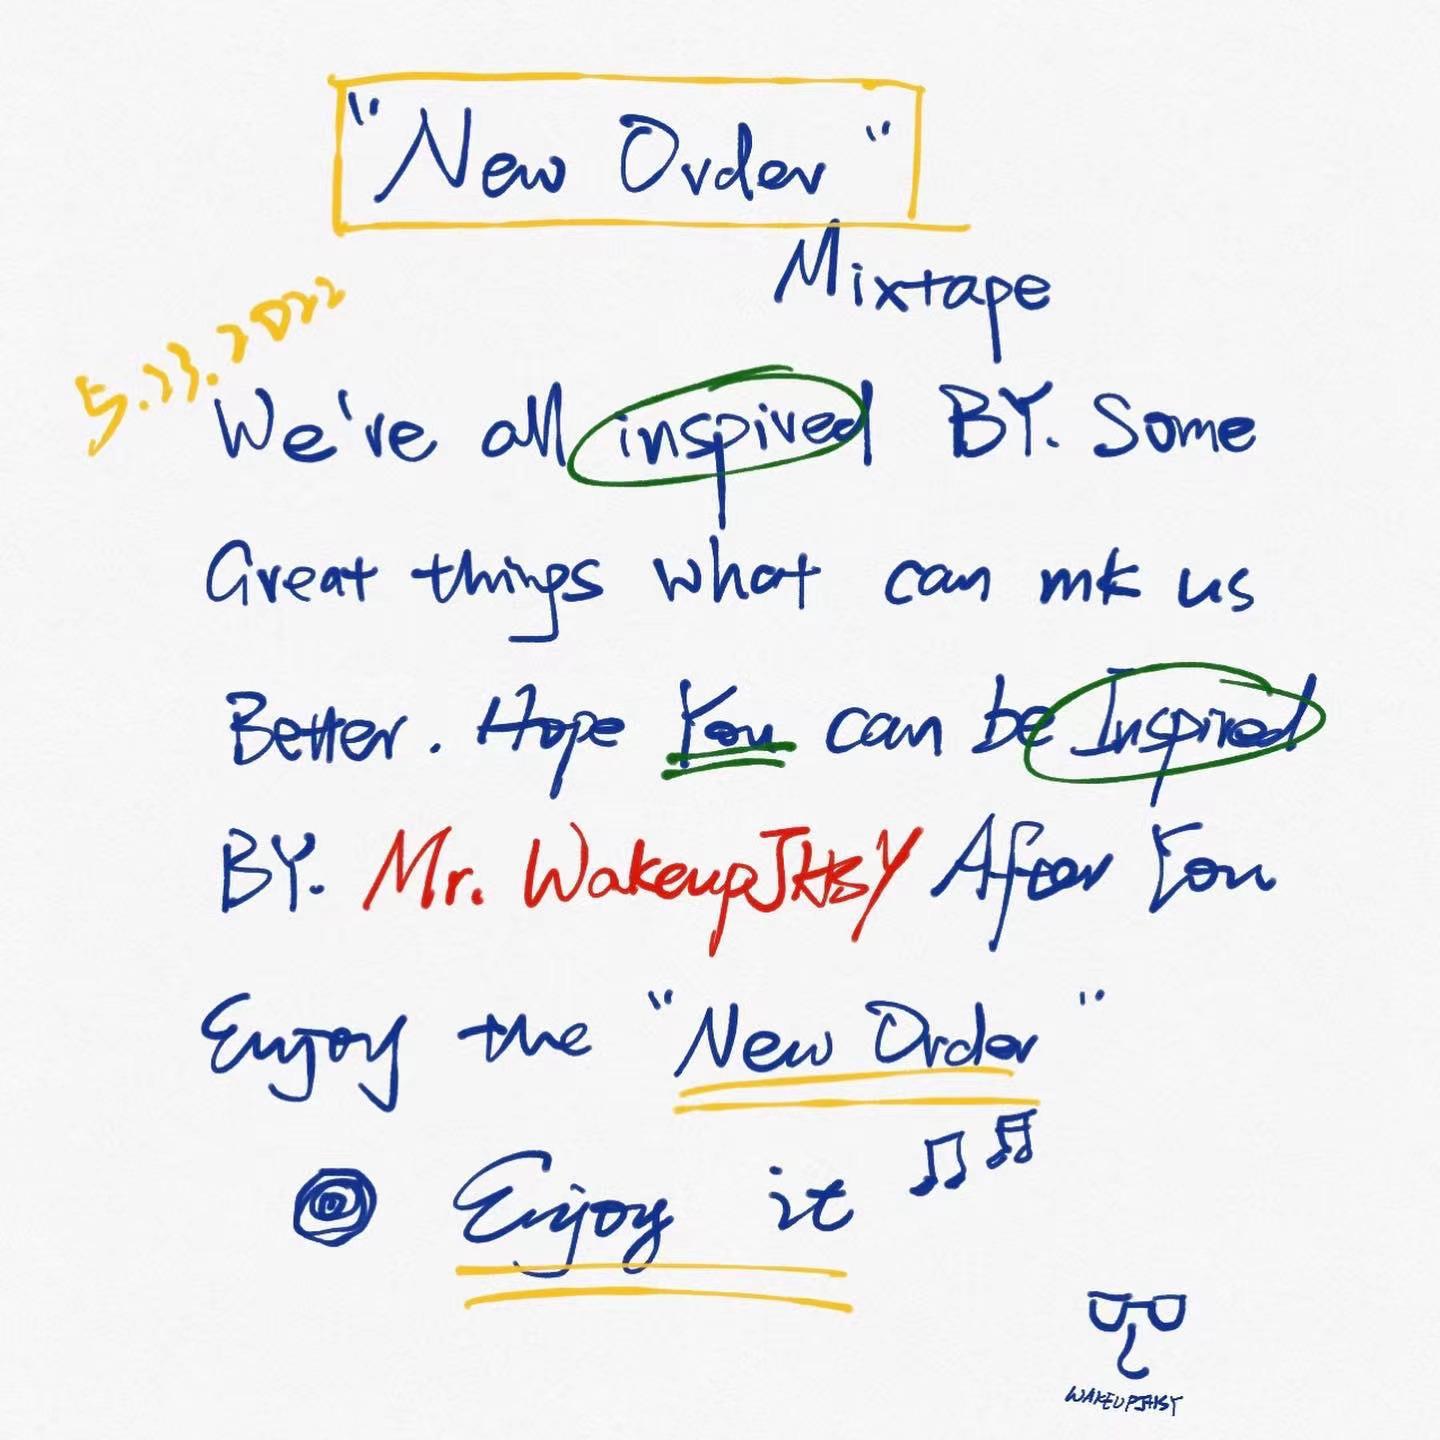 "New Order"
Mixtape
5.23.2022
We're all inspired BY. Some
Great things what can mk us
Better. Hope You can be Inspired
BY. Mr. WakeupJHSY After You
Enjoy the "New Order"
Enjoy it
WAKEUPJHSY